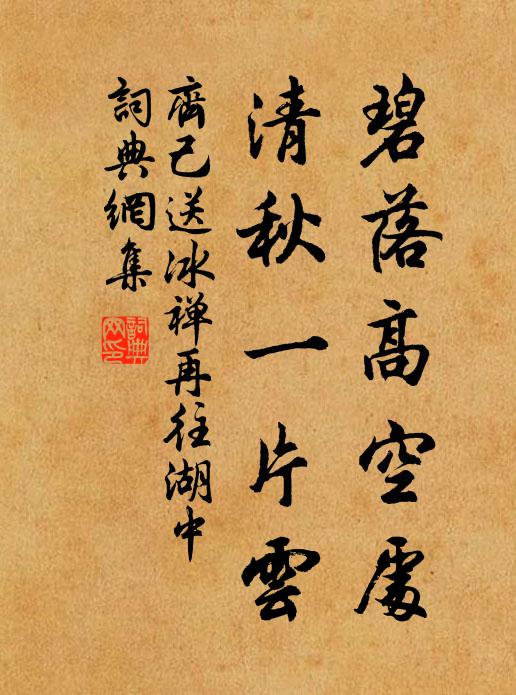 碧落高空處
清秋一片雲
齊己送冰禅再往湖中
詞典網集
詞典
网印